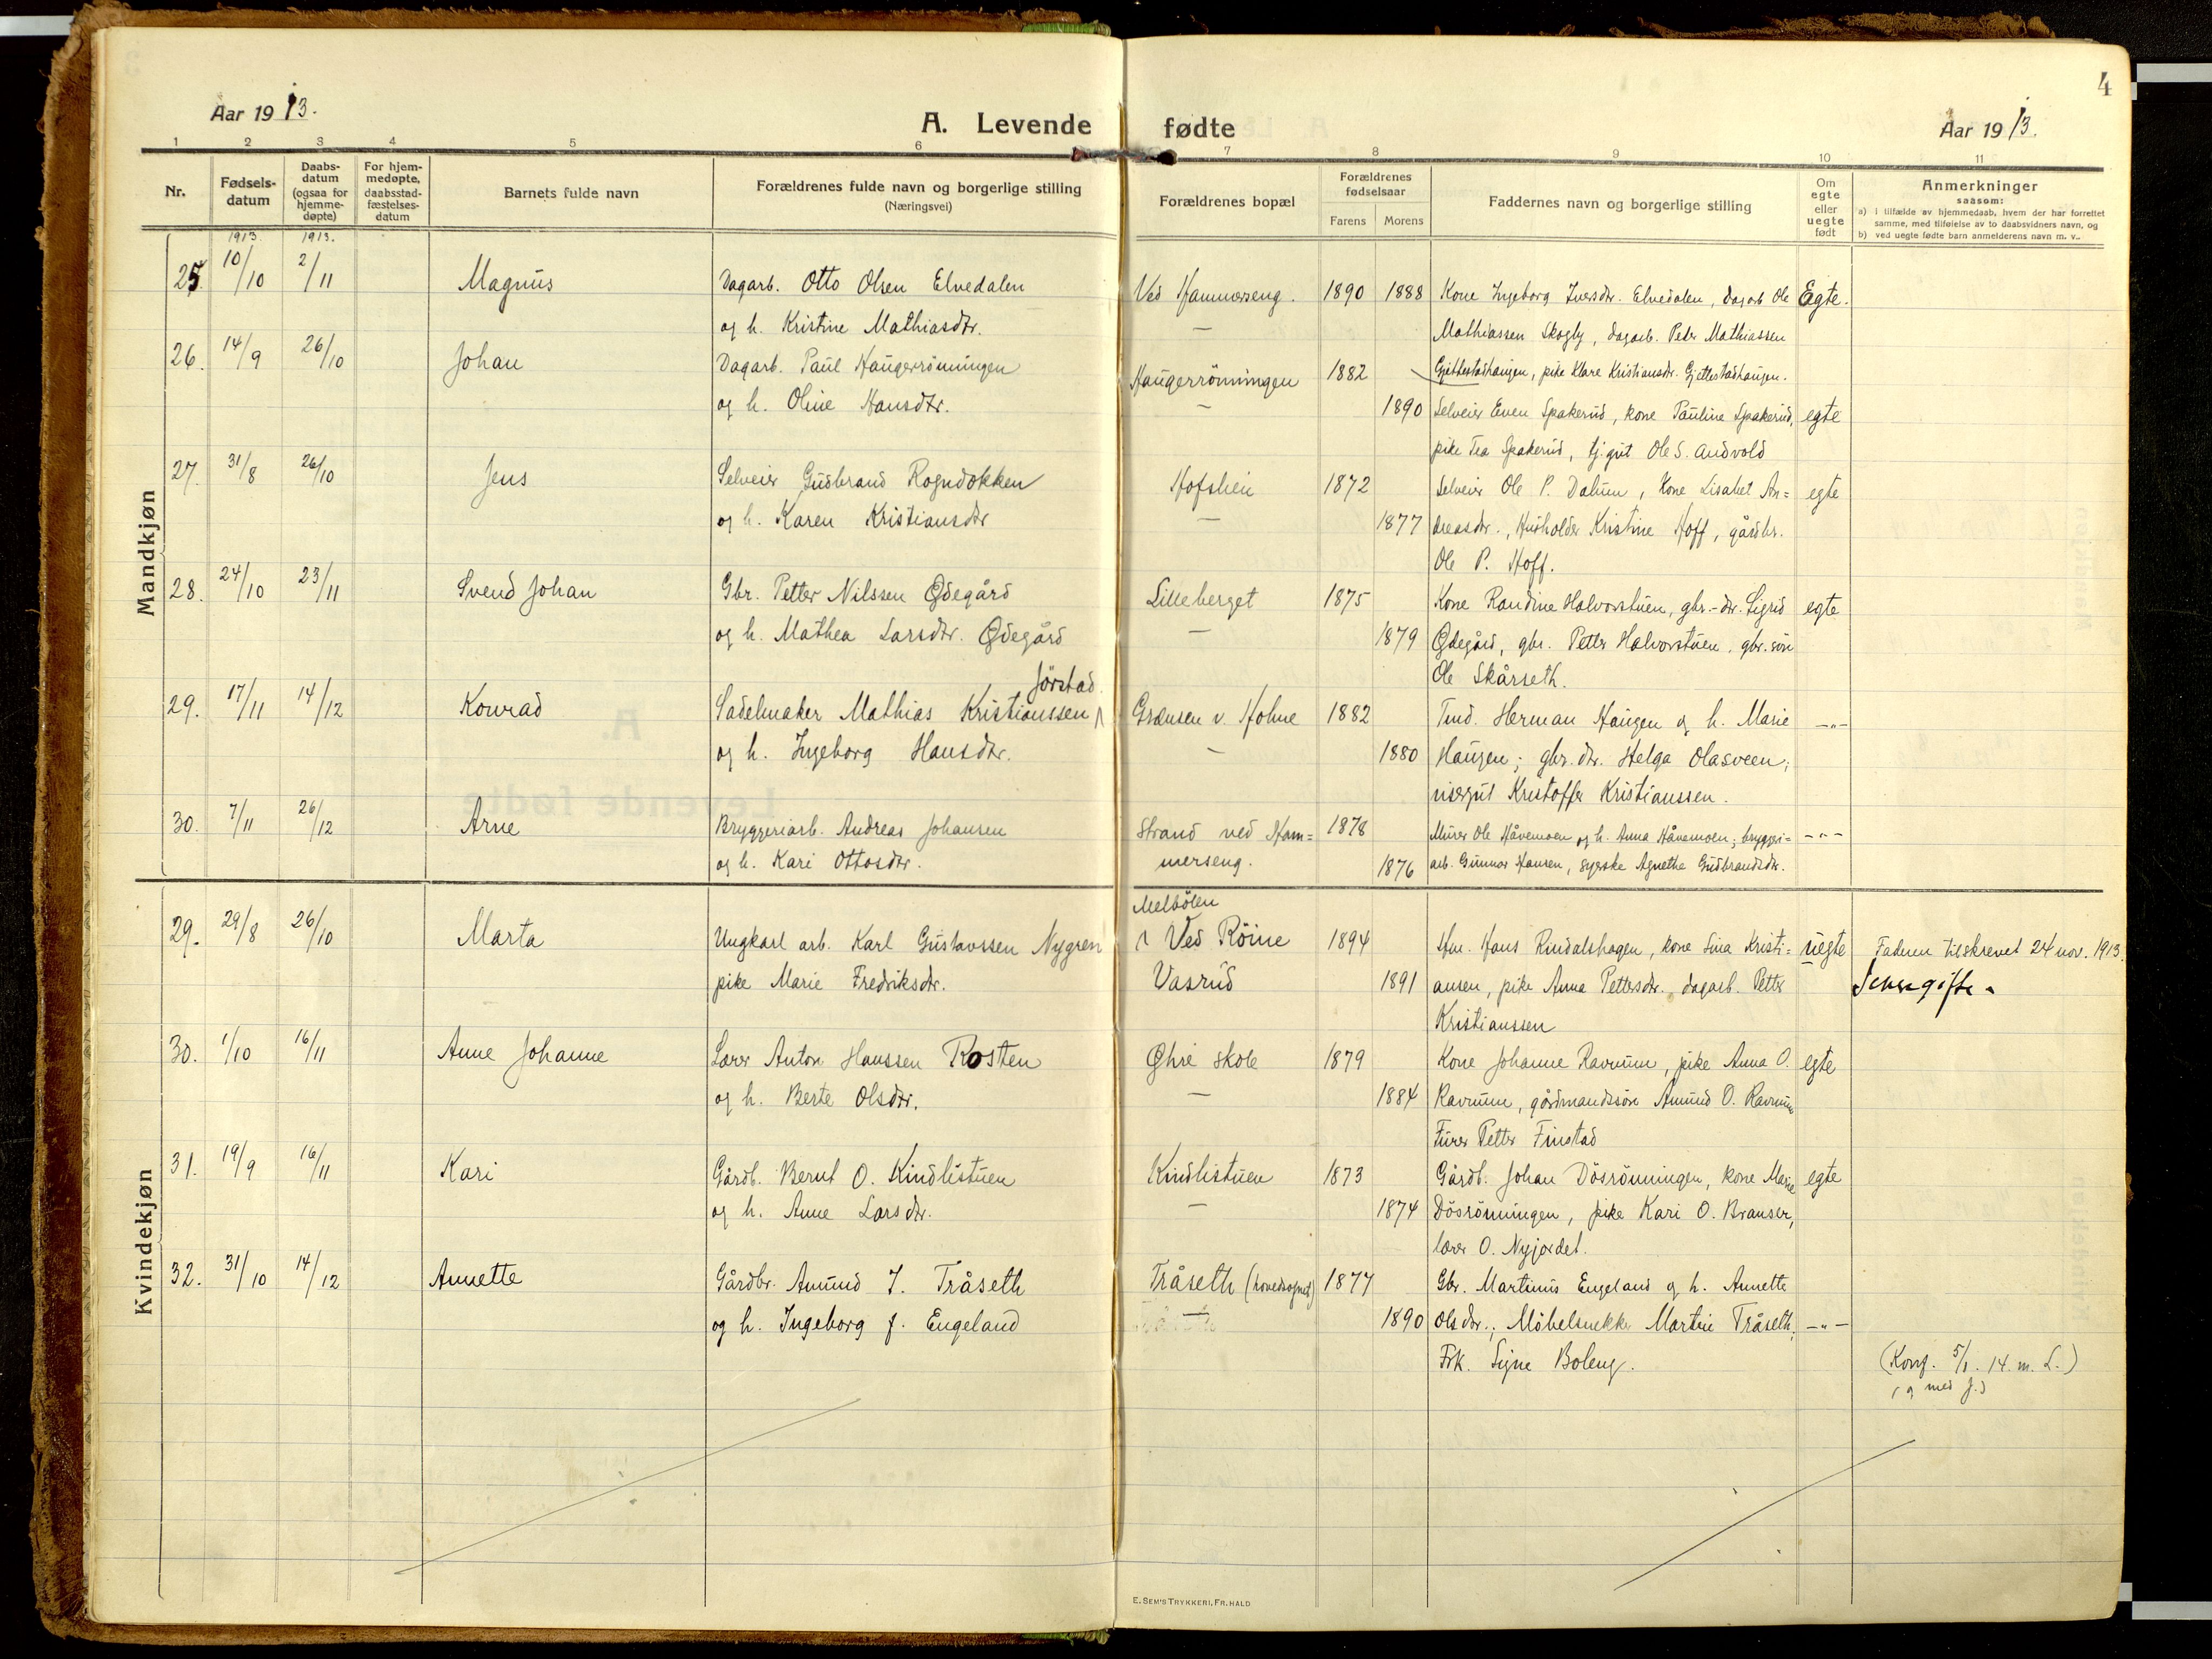 4
Aar 1913.
A. Levende fødte
Aar 1913.
1 2 3 4 5 6 7 8 9 10 11
Nr.
Fødsels-
datum
Daabs-
datum
(ogsaa for
hjemme-
døpte)
For hjem-
medøpte,
daabsstad-
fæstelses-
datum
Barnets fulde navn
Forældrenes fulde navn og borgerlige stilling
(Næringsvei)
Forældrenes bopæl
Forældrenes
fødselsaar
Farens Morens
Faddernes navn og borgerlige stilling
Om
egte
eller
uegte
født
Anmerkninger
saasom:
a) i tilfælde av hjemmedaab, hvem der har forrettet
samme, med tilføielse av to daabsvidners navn, og
b) ved uegte fødte barn anmelderens navn m. v.
Mandkjøn
1913 1913.
25. 10/10 2/11 Magnus Dagarb. Otto Olsen Elvedalen Ved Hammerseng. 1890 1888 Kone Ingeborg Iversdtr. Elvedalen, dagarb Ole Egte.
og h. Kristine Mathiasdtr. — Mathiassen Skogly, dagarb. Peder Mathiassen
26. 14/9 26/10 Johan Dagarb. Paul Haugerrönningen Haugerrönningen 1882 Gjettestadhaugen, pike Klare Kristiansdtr. Gjettestadhaugen.
og h. Oline Hansdtr. — 1890 Selveier Even Spakerud, kone Pauline Spakerud, egte
pike Tea Spakerud, tj.gut Ole S. Andvold
27. 31/8 26/10 Jens Selveier Gudbrand Rogndokken Hofslien 1872 Selveier Ole P. Dalum, Kone Lisabet An= egte
og h. Karen Kristiansdtr — 1877 dreasdtr., Husholder Kristine Hoff, gårdbr.
Ole P. Hoff.
28. 24/10 23/11 Svend Johan Gbr. Petter Nilssen Ødegård Lilleberget 1875 Kone Randine Halvorstuen, gbr.-dtr. Sigrid egte
og h. Mathea Larsdtr. Ødegård — 1879 Ødegård, gbr. Petter Halvorstuen, gbr. sön
Ole Skårseth.
Jörstad.
29. 17/11 14/12 Konrad Sadelmaker Mathias Kristianssen Grænsen v. Holme 1882 Tmd. Herman Haugen og h. Marie —"—
og h. Ingeborg Hansdtr. — 1880 Haugen; gbr. dtr. Helga Olasveen,
visergut Kristoffer Kristianssen.
30. 7/11 26/12 Arne Bryggeriarb. Andreas Johansen Strand ved Ham= 1878 Murer Ole Håvemoen og h. Anna Håvemoen; bryggeri= —"—
og h. Kari Ottosdtr. merseng. 1876 arb. Gunnar Hansen, syerske Agnethe Gudbrandsdtr.
Kvindekjøn
Melbölen
29. 29/8 26/10 Marta Ungkarl arb. Karl Gustavssen Nygren Ved Röine 1894 Hm. Hans Rindalshagen, kone Lina Kristi= uegte Faderen tilskrevet 24 nov. 1913.
pike Marie Fredriksdtr. Vasrud 1891 ansen, pike Anna Pettersdtr., dagarb. Petter Senere gifte.
Kristianssen
30. 1/10 16/11 Anne Johanne Lærer Anton Hanssen Rosten Øhre skole 1879 Kone Johanne Ravnum, pike Anna O. egte
og h. Berte Olsdtr. — 1884 Ravnum, gårdmandssön Amund O. Ravnum
Furer Petter Finstad
31. 19/9 16/11 Kari Gårdb. Bernt O. Kindlistuen Kindlistuen 1873 Gårdb. Johan Dösrönningen, kone Marie egte
og h. Anne Larsdtr. — 1874 Dösrönningen, pike Kari O. Branser,
lærer O. Nyjordet.
32. 31/10 14/12 Annette Gårdbr. Amund J. Tråseth Tråseth (hovedsognet) 1877 Gbr. Martinus Engeland og h. Annette
og h. Ingeborg f. Engeland — 1890 Olsdtr.; Möbelsnekker Martin Tråseth, —"—
Frk. Signe Boleng. (Konf. 5/1. 14. m. L.)
(og med J.)
E. SEM'S TRYKKERI, FR.HALD